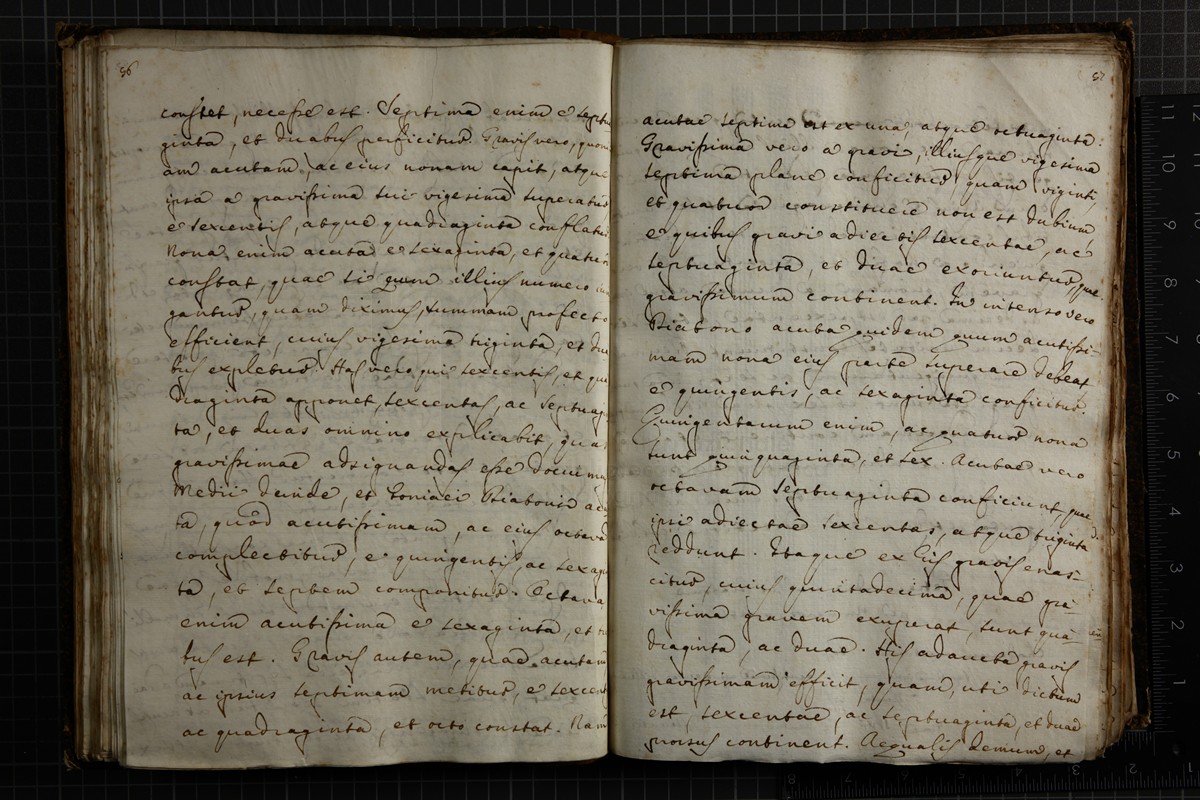 56
constet, necesse est. Septima enim e septua
ginta, et duabus perficitur. Gravis vero, quoni
am acutam, ac eius nonam capit, atque
ipsa a gravissima sui vigesima superatur,
e sexcentis, atque quadraginta conflatur.
Nona enim acuta e sexaginta, et quatuor
constat, quae si quum illius numero
gantur, quam diximus, summam profecto
efficient, cuius vigesima triginta, et dua
bus expletur. Has vero qui sexcentis, et qua
draginta apponet, sexcentas, ac septuagin
ta, et duas omnino explicabit, quas
gravissimae adsignandas esse docuimus
Medii deinde, et Toniaei Diatonis acu
ta, quod acutissimam, ac eius octava
complectitur, e quingentis, ac sexagin
ta, et septem componitur. Octava
enim acutissima e sexaginta, et tri
bus est. Gravis autem, quae acutam
ac ipsius septimam metitur, e sexcen
ac quadraginta, et octo constat. Nam
57
acutae septima est ex una, atque octuaginta.
Gravissima vero a gravi, illiusque vigesima
septima plane conficitur, quam viginti,
et quatuor constituere non est dubium
e quibus gravi adiectis sexcentae, ac
septuaginta, et duae exoriuntur, quae
gravissimum continent. In intenso vero
Diatono acuta quidem quum acutissi-
mam nona eius parte superare debeat
e quingentis, ac sexaginta conficitur.
Quingentarum enim, ac quatuor nona
sunt quinquaginta, et sex. Acutae vero
octavam septuaginta conficiunt, quae
ipsi adiectae sexcentas, atque triginta
reddunt. Itaque ex his gravis enas-
citur, cuius quintadecima, quae gra-
vissima gravem exuperat, sunt qua-
draginta, ac duae. His adaucta gravis
gravissimam efficit, quam, uti dictum
est, sexcentae, ac septuaginta, et duae
prorsus continent. Aequalis demum, et